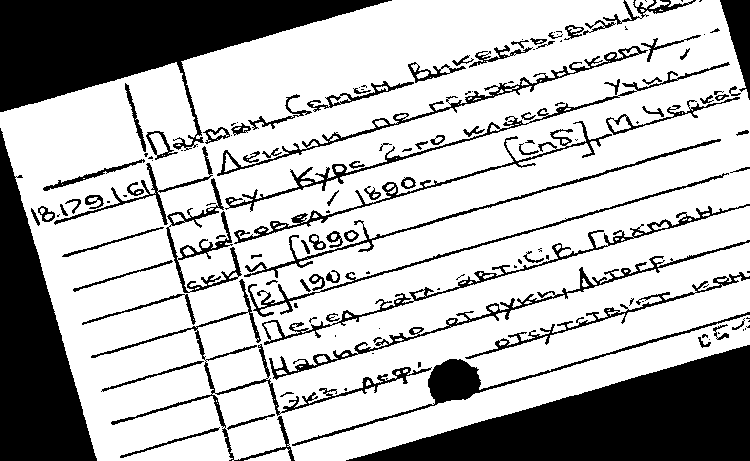 Пахман, Семен Викентьевич, 182
Лекции по гражданскому
18.179.1.61 праву. Курс 2-го класса Учил.
правовед. 1890 г. [Спб], М. Черкас-
ский, [1890].
[2], 190 с.
Перед загл. авт.: С. В. Пахман.
Написано от руки, Литогр.
Экз. деф.: отсутствует кон